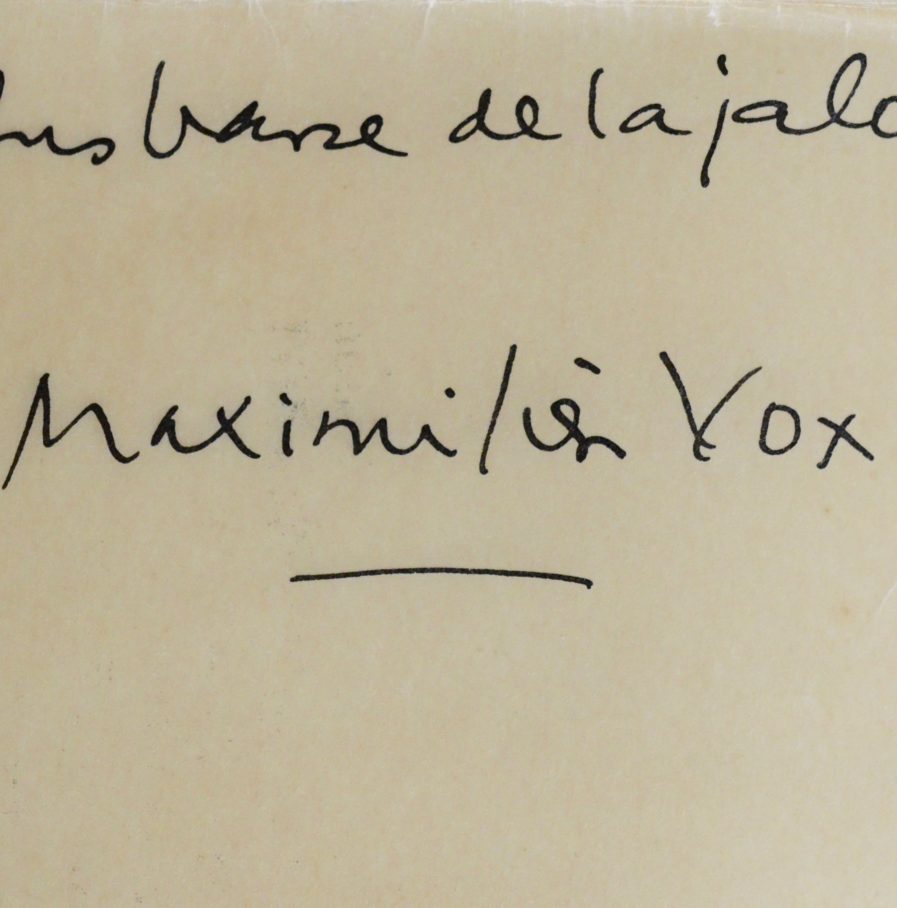 lus basse de la jalo
Maximilièn Vox